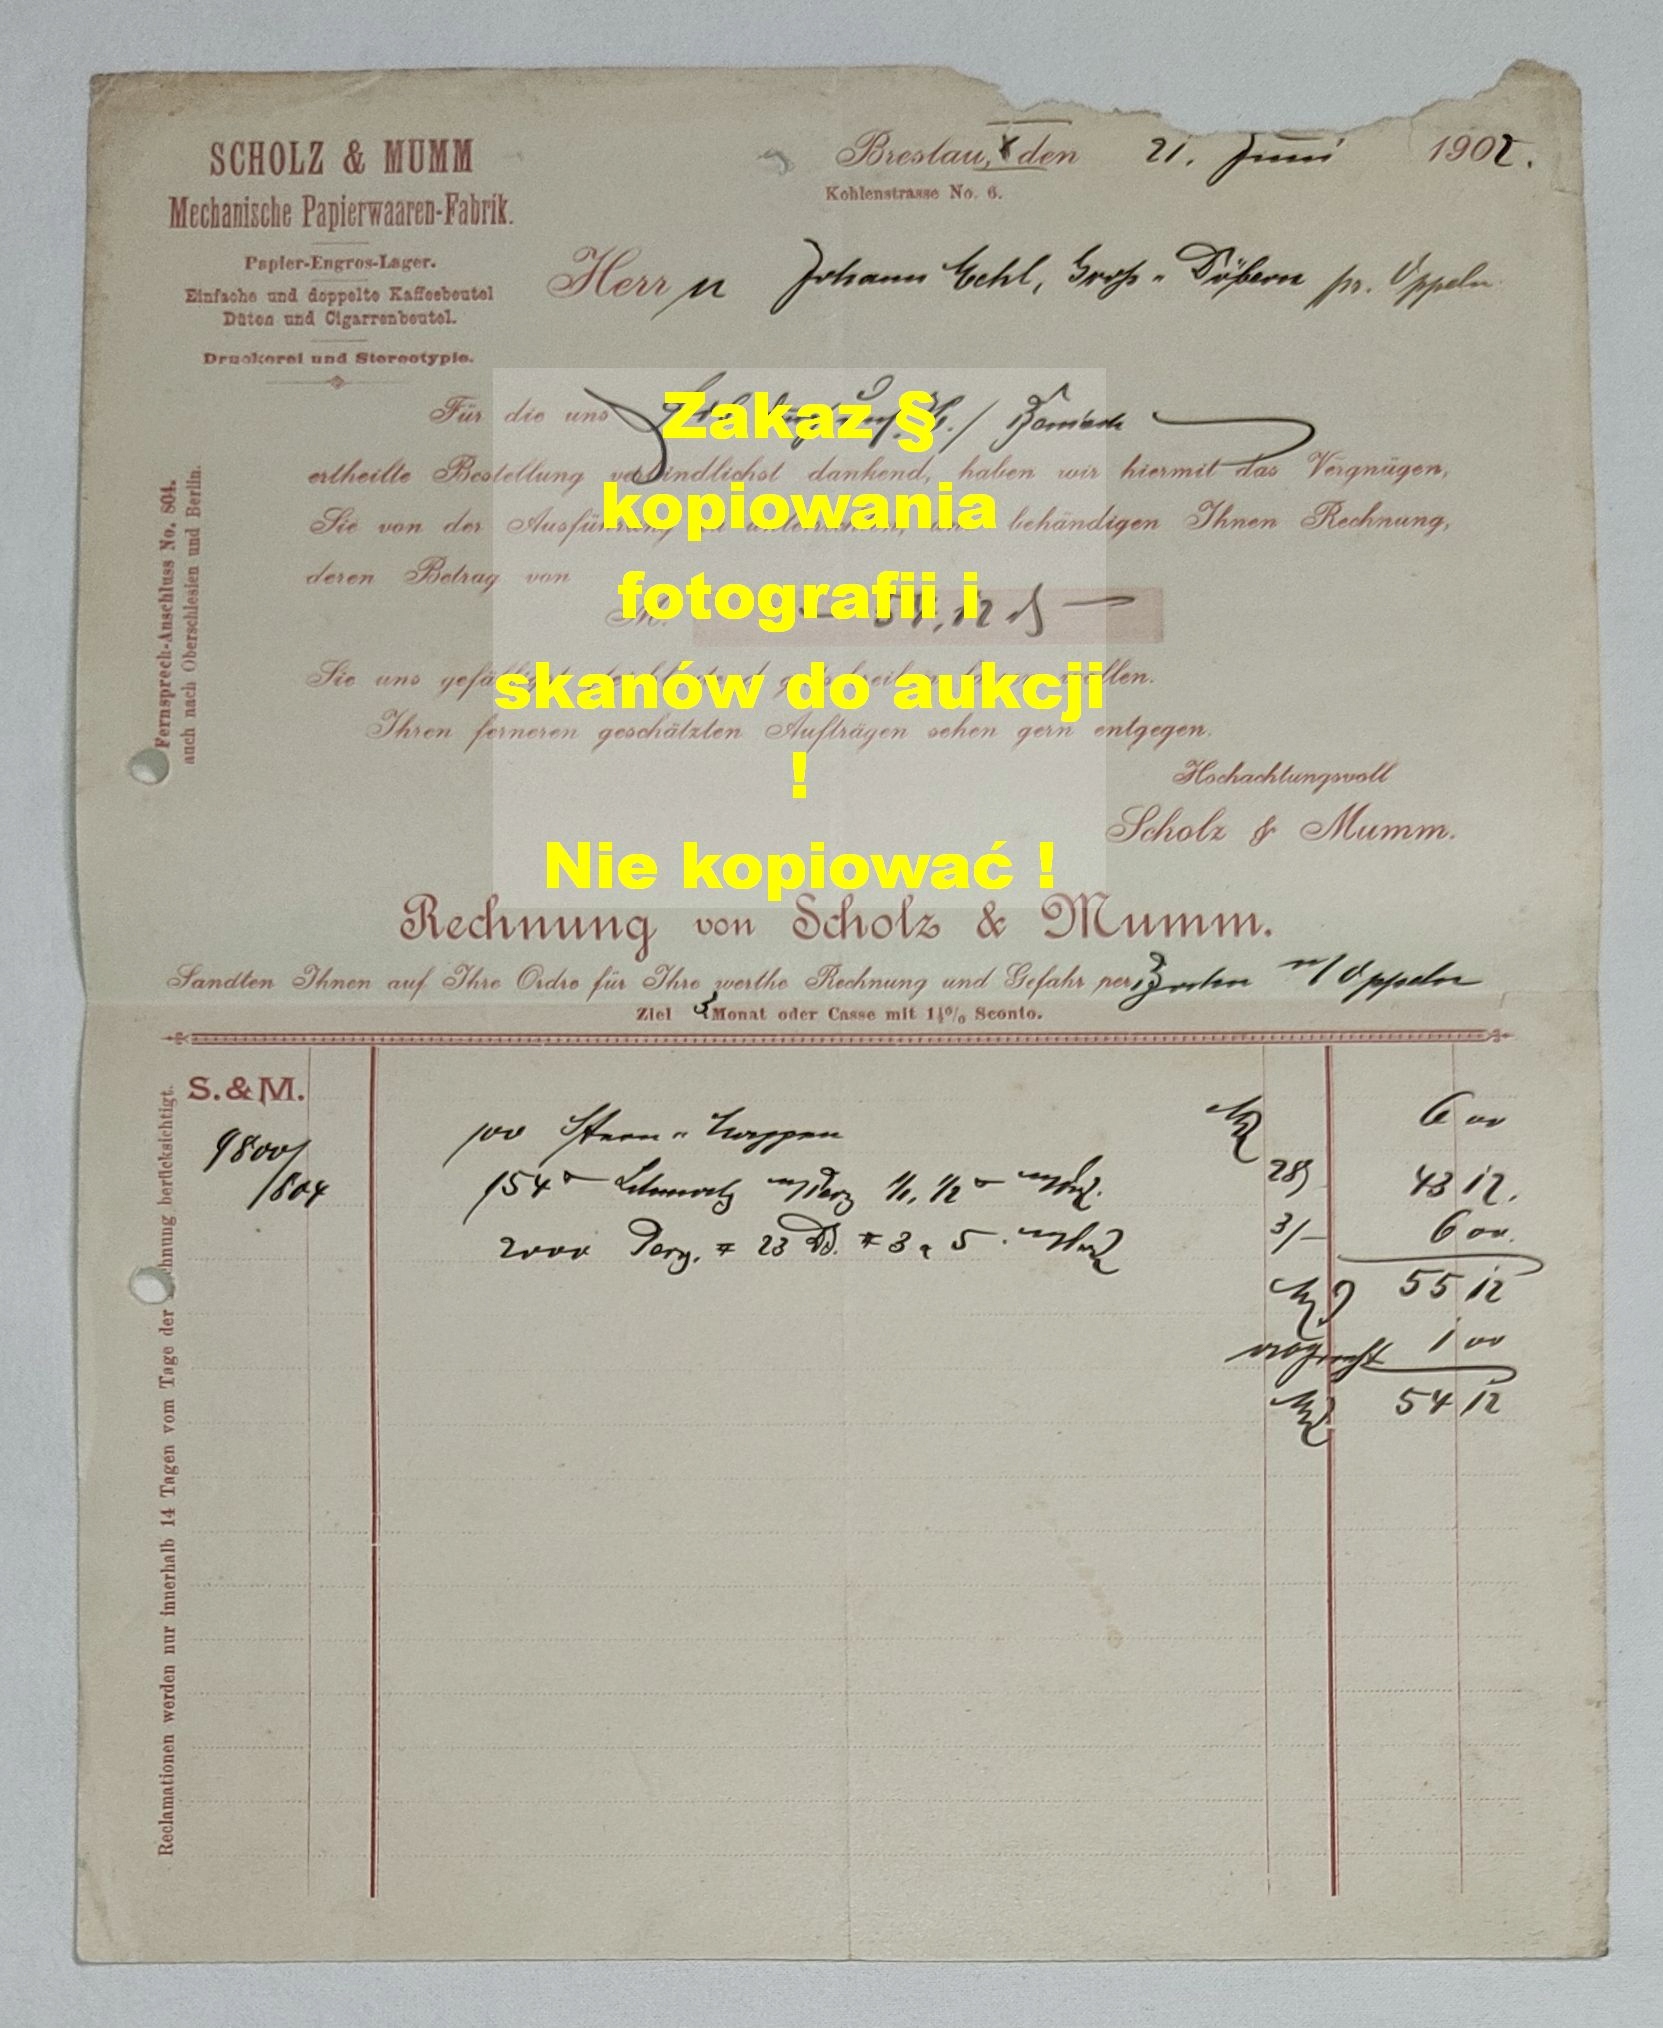 SCHOLZ & MUMM
Mechanische Papierwaaren-Fabrik.
Papier-Engros-Lager.
Einfache und doppelte Kaffeebeutel
Düten und Cigarrenbeutel.
Druckerei und Stereotypie.
Breslau, X den 21. Juni 1902.
Kohlenstrasse No. 6.
Herrn Johann Echl, Gross-Döbern pr. Oppeln
Fernsprech-Anschluss No. 804.
auch nach Oberschlesien und Berlin.
Für die uns
ertheilte Bestellung verbindlichst dankend, haben wir hiermit das Vergnügen,
Sie von der Ausführung zu unterrichten, und behändigen Ihnen Rechnung,
deren Betrag von
M. — 54,12 —
Sie uns gefälligst gutschreiben wollen.
Ihren ferneren geschätzten Aufträgen sehen gern entgegen.
Hochachtungsvoll
Scholz & Mumm.
Zakaz §
kopiowania
fotografii i
skanów do aukcji
!
Nie kopiować !
Rechnung von Scholz & Mumm.
Sandten Ihnen auf Ihre Ordre für Ihre werthe Rechnung und Gefahr per Bahn n/ Oppeln
Ziel 3 Monat oder Casse mit 1½% Sconto.
Reclamationen werden nur innerhalb 14 Tagen vom Tage der Rechnung berücksichtigt.
S. & M.
9800/
/804
100 6 00
154 1/1, 1/2 28 43 12.
2000 Perg. 23 3 5 3/– 6 00.
55 12
1 00
54 12